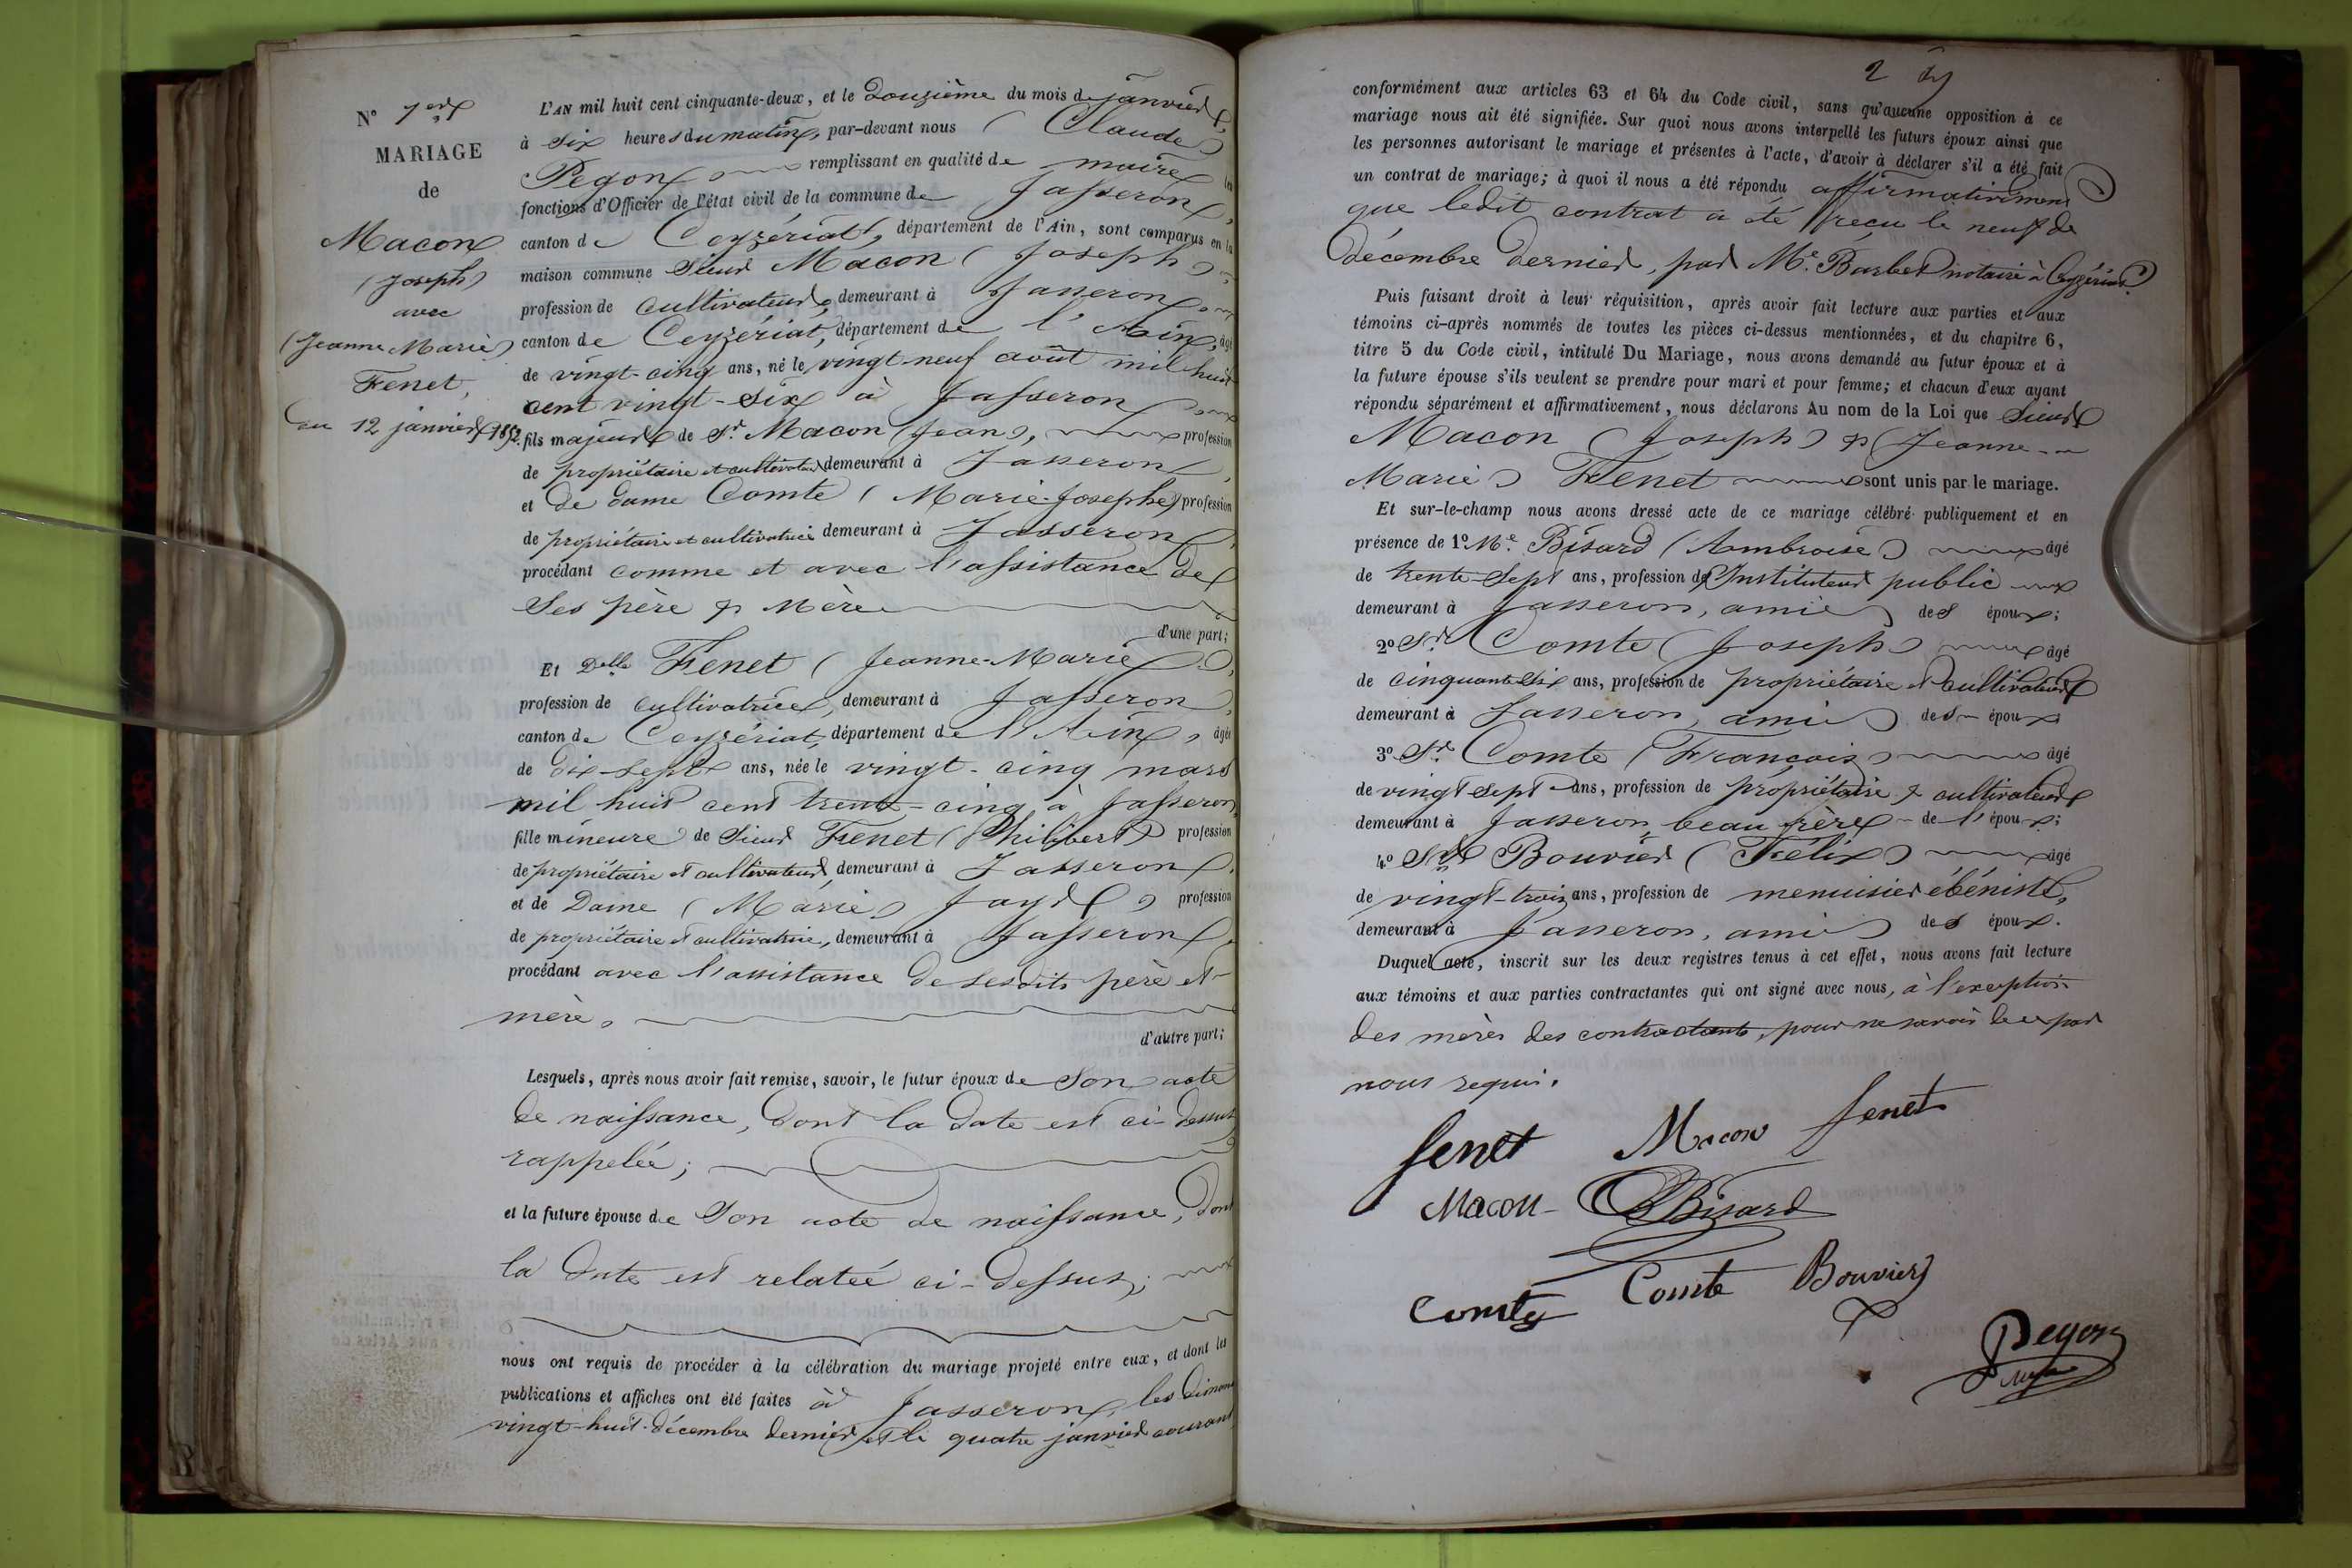 N° 1er
MARIAGE
de
Macon
(Joseph)
avec
(Jeanne Marie)
Fenet,
du 12 janvier 1852.
L'AN mil huit cent cinquante-deux, et le douzième du mois de janvier,
à six heures du matin, par-devant nous (Claude)
Pegon remplissant en qualité de maire les
fonctions d'Officier de l'état civil de la commune de Jasseron,
canton de Ceyzériat, département de l'Ain, sont comparus en la
maison commune Sieur Macon (Joseph)
profession de cultivateur, demeurant à Jasseron
canton de Ceyzériat, département de l'Ain, âgé
de vingt-cinq ans, né le vingt-neuf août mil huit
cent vingt-six à Jasseron
fils majeur de Sr. Macon (Jean), profession
de propriétaire et cultivateur demeurant à Jasseron,
et de dame Comte (Marie-Josephe) profession
de propriétaire et cultivatrice demeurant à Jasseron,
procédant comme et avec l'assistance de
ses père & mère
d'une part;
Et Delle Fenet (Jeanne-Marie),
profession de cultivatrice, demeurant à Jasseron,
canton de Ceyzériat, département de l'Ain, âgée
de dix-sept ans, née le vingt-cinq mars
mil huit cent trente-cinq à Jasseron,
fille mineure de Sieur Fenet (Philibert) profession
de propriétaire et cultivateur, demeurant à Jasseron,
et de Dame (Marie) Jayr, profession
de propriétaire et cultivatrice, demeurant à Jasseron,
procédant avec l'assistance de sesdits père et
mère,
d'autre part;
Lesquels, après nous avoir fait remise, savoir, le futur époux de son acte
de naissance, dont la date est ci-dessus
rappelée;
et la future épouse de son acte de naissance, dont
la date est relatée ci-dessus;
nous ont requis de procéder à la célébration du mariage projeté entre eux, et dont les
publications et affiches ont été faites à Jasseron, les dimanc
vingt-huit décembre dernier et le quatre janvier courant,
2
conformément aux articles 63 et 64 du Code civil, sans qu'aucune opposition à ce
mariage nous ait été signifiée. Sur quoi nous avons interpellé les futurs époux ainsi que
les personnes autorisant le mariage et présentes à l'acte, d'avoir à déclarer s'il a été fait
un contrat de mariage; à quoi il nous a été répondu affirmativement
que ledit contrat a été reçu le neuf de
décembre dernier, par Me. Barbet notaire à Ceyzériat.
Puis faisant droit à leur réquisition, après avoir fait lecture aux parties et aux
témoins ci-après nommés de toutes les pièces ci-dessus mentionnées, et du chapitre 6,
titre 5 du Code civil, intitulé Du Mariage, nous avons demandé au futur époux et à
la future épouse s'ils veulent se prendre pour mari et pour femme; et chacun d'eux ayant
répondu séparément et affirmativement, nous déclarons Au nom de la Loi que Sieur
Macon (Joseph) & (Jeanne-
Marie) Fenet sont unis par le mariage.
Et sur-le-champ nous avons dressé acte de ce mariage célébré publiquement et en
présence de 1° Me. Bisard (Ambroise) âgé
de trente-sept ans, profession d'Instituteur public
demeurant à Jasseron, ami des époux;
2° Sr. Comte (Joseph) âgé
de cinquante six ans, profession de propriétaire et cultivateur
demeurant à Jasseron, ami des époux
3° Sr. Comte (François) âgé
de vingt sept ans, profession de propriétaire & cultivateur
demeurant à Jasseron, beau frère de l'époux;
4° Sr Bouvier (Félix) âgé
de vingt-trois ans, profession de menuisier ébéniste,
demeurant à Jasseron, ami des époux.
Duquel acte, inscrit sur les deux registres tenus à cet effet, nous avons fait lecture
aux témoins et aux parties contractantes qui ont signé avec nous, à l'exception
des mères des contractants, pour ne savoir de ce par
nous requis.
fenet Macon fenet
Macon Bisard
Comte Comte Bouvier
Pegon